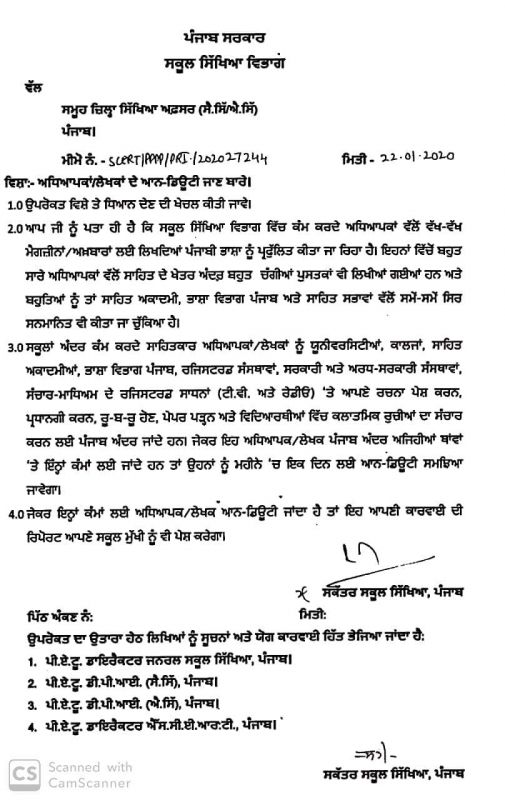 ਪੰਜਾਬ ਸਰਕਾਰ
ਸਕੂਲ ਸਿੱਖਿਆ ਵਿਭਾਗ
ਵੱਲ
ਸਮੂਹ ਜ਼ਿਲ੍ਹਾ ਸਿੱਖਿਆ ਅਫ਼ਸਰ (ਸੈ.ਸਿੱ/ਐ.ਸਿੱ)
ਪੰਜਾਬ।
ਮੀਮੋ ਨੰ. - SCERT/PPPP/PRI./202027244 ਮਿਤੀ - 22.01.2020
ਵਿਸ਼ਾ:- ਅਧਿਆਪਕਾਂ/ਲੇਖਕਾਂ ਦੇ ਆਨ-ਡਿਊਟੀ ਜਾਣ ਬਾਰੇ।
1.0 ਉਪਰੋਕਤ ਵਿਸ਼ੇ ਤੇ ਧਿਆਨ ਦੇਣ ਦੀ ਖੇਚਲ ਕੀਤੀ ਜਾਵੇ।
2.0 ਆਪ ਜੀ ਨੂੰ ਪਤਾ ਹੀ ਹੈ ਕਿ ਸਕੂਲ ਸਿੱਖਿਆ ਵਿਭਾਗ ਵਿੱਚ ਕੰਮ ਕਰਦੇ ਅਧਿਆਪਕਾਂ ਵੱਲੋਂ ਵੱਖ-ਵੱਖ
ਮੈਗਜ਼ੀਨਾਂ/ਅਖ਼ਬਾਰਾਂ ਲਈ ਲਿਖਦਿਆਂ ਪੰਜਾਬੀ ਭਾਸ਼ਾ ਨੂੰ ਪ੍ਰਫੁੱਲਿਤ ਕੀਤਾ ਜਾ ਰਿਹਾ ਹੈ। ਇਹਨਾਂ ਵਿੱਚੋਂ ਬਹੁਤ
ਸਾਰੇ ਅਧਿਆਪਕਾਂ ਵੱਲੋਂ ਸਾਹਿਤ ਦੇ ਖੇਤਰ ਅੰਦਰ ਬਹੁਤ ਚੰਗੀਆਂ ਪੁਸਤਕਾਂ ਵੀ ਲਿਖੀਆਂ ਗਈਆਂ ਹਨ ਅਤੇ
ਬਹੁਤਿਆਂ ਨੂੰ ਤਾਂ ਸਾਹਿਤ ਅਕਾਦਮੀ, ਭਾਸ਼ਾ ਵਿਭਾਗ ਪੰਜਾਬ ਅਤੇ ਸਾਹਿਤ ਸਭਾਵਾਂ ਵੱਲੋਂ ਸਮੇਂ-ਸਮੇਂ ਸਿਰ
ਸਨਮਾਨਿਤ ਵੀ ਕੀਤਾ ਜਾ ਚੁੱਕਿਆ ਹੈ।
3.0 ਸਕੂਲਾਂ ਅੰਦਰ ਕੰਮ ਕਰਦੇ ਸਾਹਿਤਕਾਰ ਅਧਿਆਪਕਾਂ/ਲੇਖਕਾਂ ਨੂੰ ਯੂਨੀਵਰਸਿਟੀਆਂ, ਕਾਲਜਾਂ, ਸਾਹਿਤ
ਅਕਾਦਮੀਆਂ, ਭਾਸ਼ਾ ਵਿਭਾਗ ਪੰਜਾਬ, ਰਜਿਸਟਰਡ ਸੰਸਥਾਵਾਂ, ਸਰਕਾਰੀ ਅਤੇ ਅਰਧ-ਸਰਕਾਰੀ ਸੰਸਥਾਵਾਂ,
ਸੰਚਾਰ-ਮਾਧਿਅਮ ਦੇ ਰਜਿਸਟਰਡ ਸਾਧਨਾਂ (ਟੀ.ਵੀ. ਅਤੇ ਰੇਡੀਓ) 'ਤੇ ਆਪਣੇ ਰਚਨਾ ਪੇਸ਼ ਕਰਨ,
ਪ੍ਰਧਾਨਗੀ ਕਰਨ, ਰੂ-ਬ-ਰੂ ਹੋਣ, ਪੇਪਰ ਪੜ੍ਹਨ ਅਤੇ ਵਿਦਿਆਰਥੀਆਂ ਵਿੱਚ ਕਲਾਤਮਿਕ ਰੁਚੀਆਂ ਦਾ ਸੰਚਾਰ
ਕਰਨ ਲਈ ਪੰਜਾਬ ਅੰਦਰ ਜਾਂਦੇ ਹਨ। ਜੇਕਰ ਇਹ ਅਧਿਆਪਕ/ਲੇਖਕ ਪੰਜਾਬ ਅੰਦਰ ਅਜਿਹੀਆਂ ਥਾਂਵਾਂ
'ਤੇ ਇੰਨ੍ਹਾਂ ਕੰਮਾਂ ਲਈ ਜਾਂਦੇ ਹਨ ਤਾਂ ਉਹਨਾਂ ਨੂੰ ਮਹੀਨੇ 'ਚ ਇਕ ਦਿਨ ਲਈ ਆਨ-ਡਿਊਟੀ ਸਮਝਿਆ
ਜਾਵੇਗਾ।
4.0 ਜੇਕਰ ਇਨ੍ਹਾਂ ਕੰਮਾਂ ਲਈ ਅਧਿਆਪਕ/ਲੇਖਕ ਆਨ-ਡਿਊਟੀ ਜਾਂਦਾ ਹੈ ਤਾਂ ਇਹ ਆਪਣੀ ਕਾਰਵਾਈ ਦੀ
ਰਿਪੋਰਟ ਆਪਣੇ ਸਕੂਲ ਮੁੱਖੀ ਨੂੰ ਵੀ ਪੇਸ਼ ਕਰੇਗਾ।
ਸਕੱਤਰ ਸਕੂਲ ਸਿੱਖਿਆ, ਪੰਜਾਬ
ਪਿੱਠ ਅੰਕਣ ਨੰ: ਮਿਤੀ:
ਉਪਰੋਕਤ ਦਾ ਉਤਾਰਾ ਹੇਠ ਲਿਖਿਆਂ ਨੂੰ ਸੂਚਨਾਂ ਅਤੇ ਯੋਗ ਕਾਰਵਾਈ ਹਿੱਤ ਭੇਜਿਆ ਜਾਂਦਾ ਹੈ:
1. ਪੀ.ਏ.ਟੂ. ਡਾਇਰੈਕਟਰ ਜਨਰਲ ਸਕੂਲ ਸਿੱਖਿਆ, ਪੰਜਾਬ।
2. ਪੀ.ਏ.ਟੂ. ਡੀ.ਪੀ.ਆਈ. (ਸੈ.ਸਿੱ), ਪੰਜਾਬ।
3. ਪੀ.ਏ.ਟੂ. ਡੀ.ਪੀ.ਆਈ. (ਐ.ਸਿੱ), ਪੰਜਾਬ।
4. ਪੀ.ਏ.ਟੂ. ਡਾਇਰੈਕਟਰ ਐੱਸ.ਸੀ.ਈ.ਆਰ.ਟੀ., ਪੰਜਾਬ।
ਸਕੱਤਰ ਸਕੂਲ ਸਿੱਖਿਆ, ਪੰਜਾਬ
CS Scanned with
CamScanner